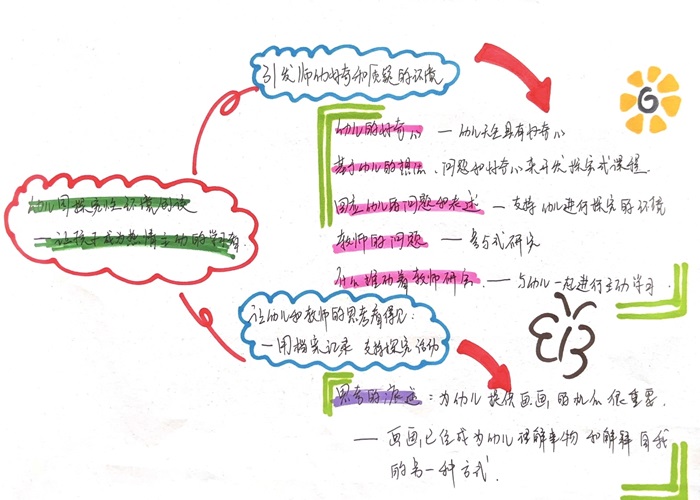 引发师幼好奇和质疑的环境
G
幼儿的好奇心 — 幼儿天生具有好奇心
基于幼儿的想法、问题和好奇心来开发探究式课程.
回应幼儿的问题和表述 — 支持幼儿进行探究的环境
幼儿园探究性环境创设
—让孩子成为热情主动的学习者.
教师的问题 — 参与式研究
什么推动着教师研究 — 与幼儿一起进行主动学习.
让幼儿和教师的思考看得见:
—用档案记录 支持探究活动
思考的表述: 为幼儿提供画画的机会很重要.
— 画画已经成为幼儿理解事物和解释自我
的另一种方式.